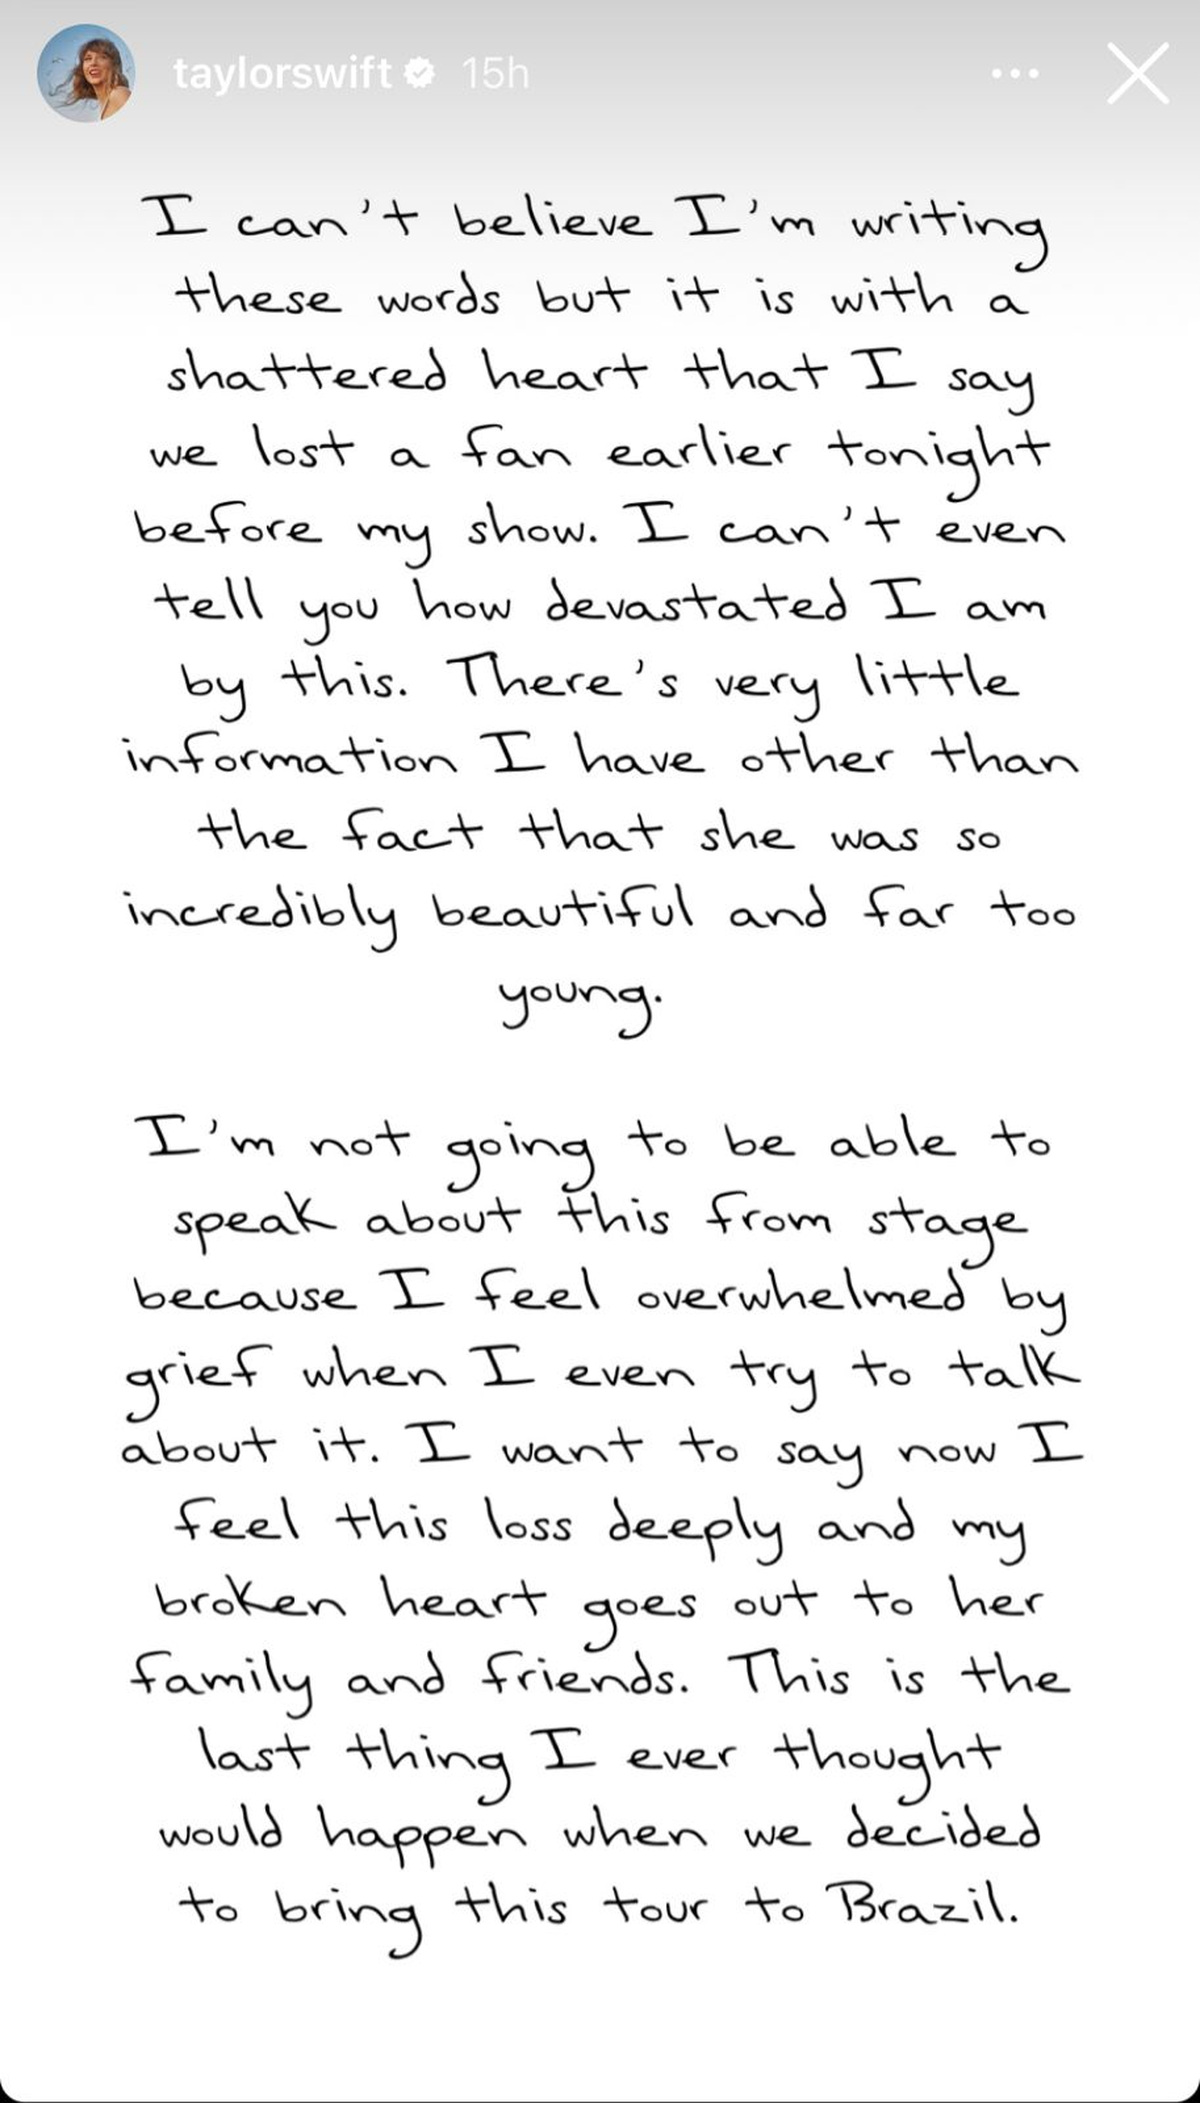 taylorswift 15h
I can't believe I'm writing
these words but it is with a
shattered heart that I say
we lost a fan earlier tonight
before my show. I can't even
tell you how devastated I am
by this. There's very little
information I have other than
the fact that she was so
incredibly beautiful and far too
young.
I'm not going to be able to
speak about this from stage
because I feel overwhelmed by
grief when I even try to talk
about it. I want to say now I
feel this loss deeply and my
broken heart goes out to her
family and friends. This is the
last thing I ever thought
would happen when we decided
to bring this tour to Brazil.